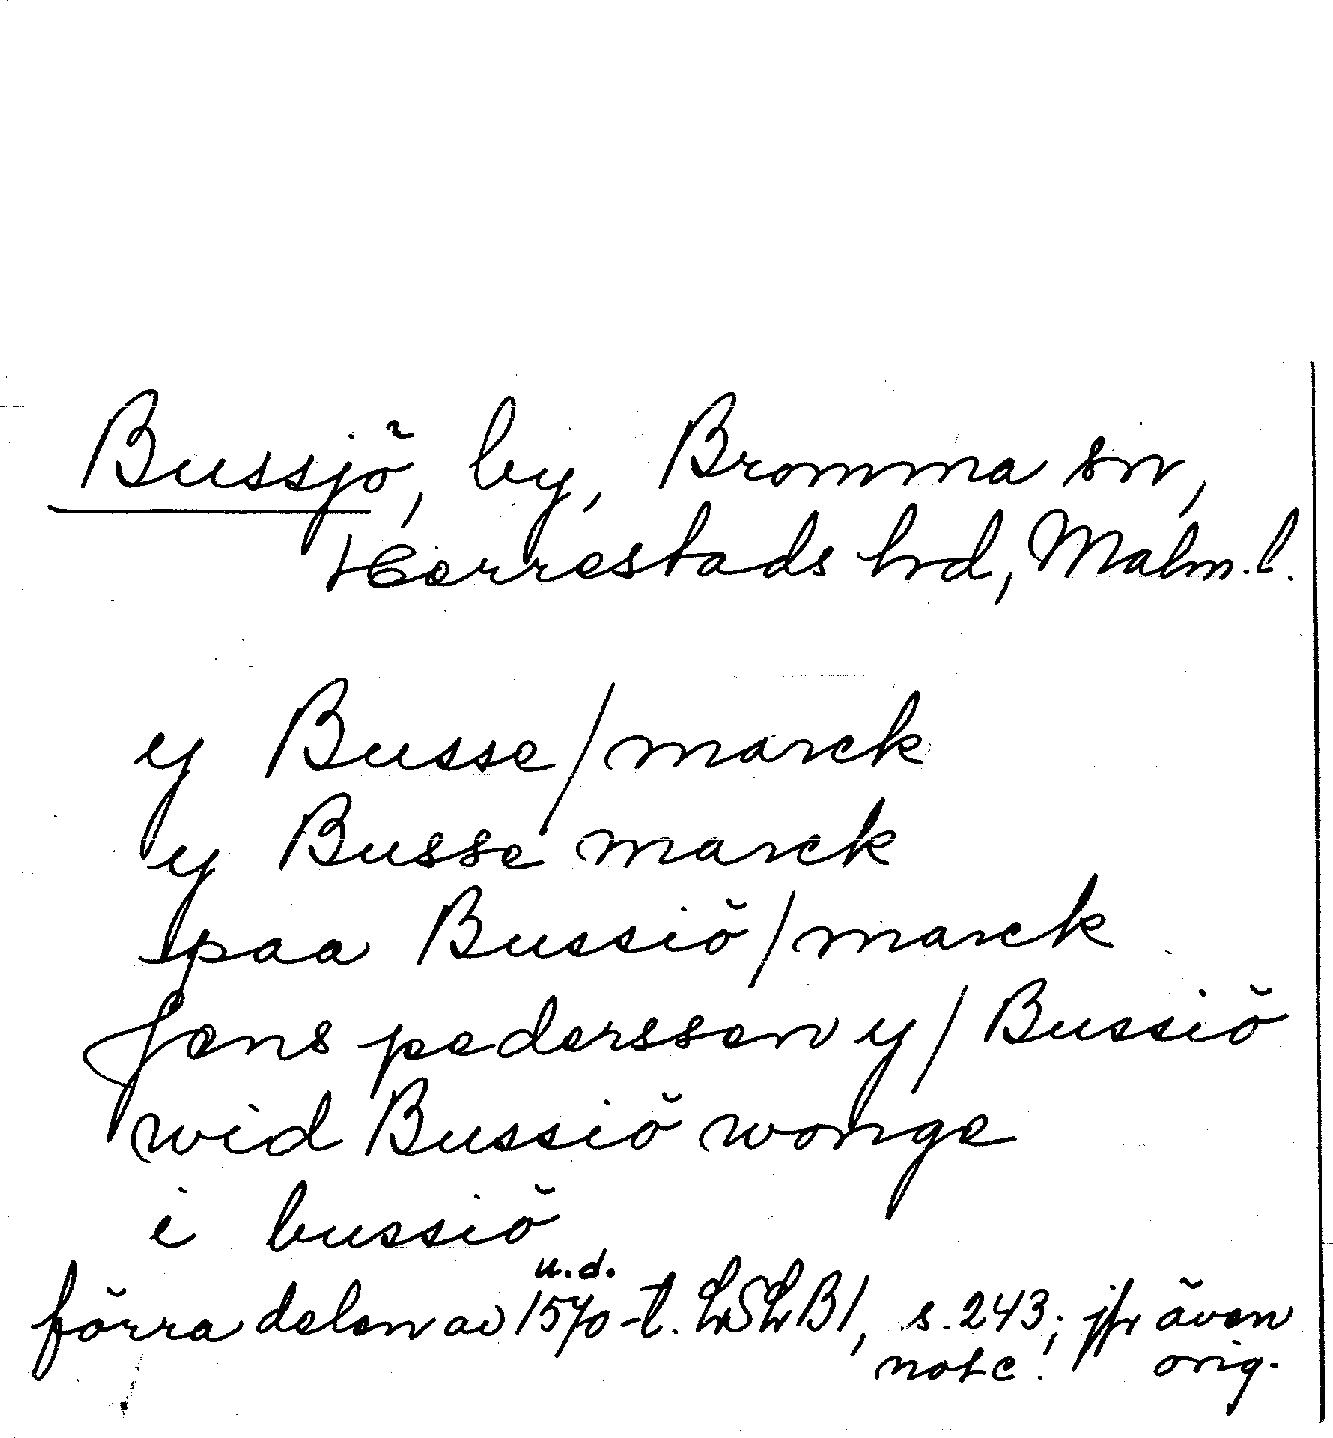 Bussjö, by, Bromma sn,
Herrestads hd, Malm.l.
y Busse/marck
y Busse marck
paa Bussiö/marck
Jens pederssen y/Bussiö
wid Bussiö wonge
i bussiö
u.d.
förra delen av 1570-t. LSLB1, s.243; jfr även
note. orig.